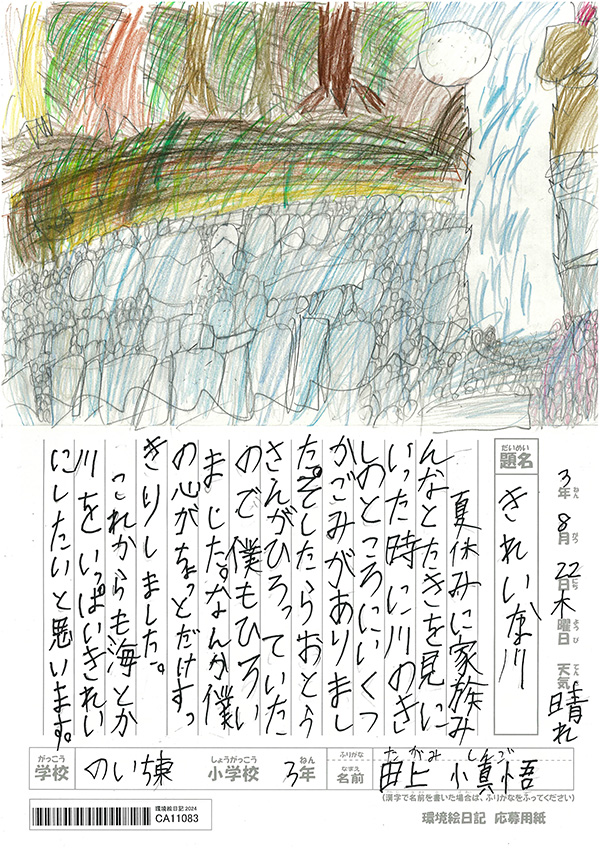 3年 8月 22日 木曜日 天気 晴れ
ねん がつ にち ようび てんき
だいめい
題名
きれいな川
夏休みに家族み
んなとたきを見に
いった時に川のき
しのところにいくつ
かごみがありまし
た。そしたらおとう
さんがひろっていた
ので僕もひろい
ました。なんか僕
の心がちょっとだけすっ
きりしました。
これからも海とか
川をいっぱいきれい
にしたいと思います。
がっこう しょうがっこう ねん
学校 のいち東 小学校 3年
ふりがな たがみ しんご
なまえ
名前 田上 愼悟
(漢字で名前を書いた場合は、ふりがなをふってください)
環境絵日記2024
CA11083
環境絵日記 応募用紙